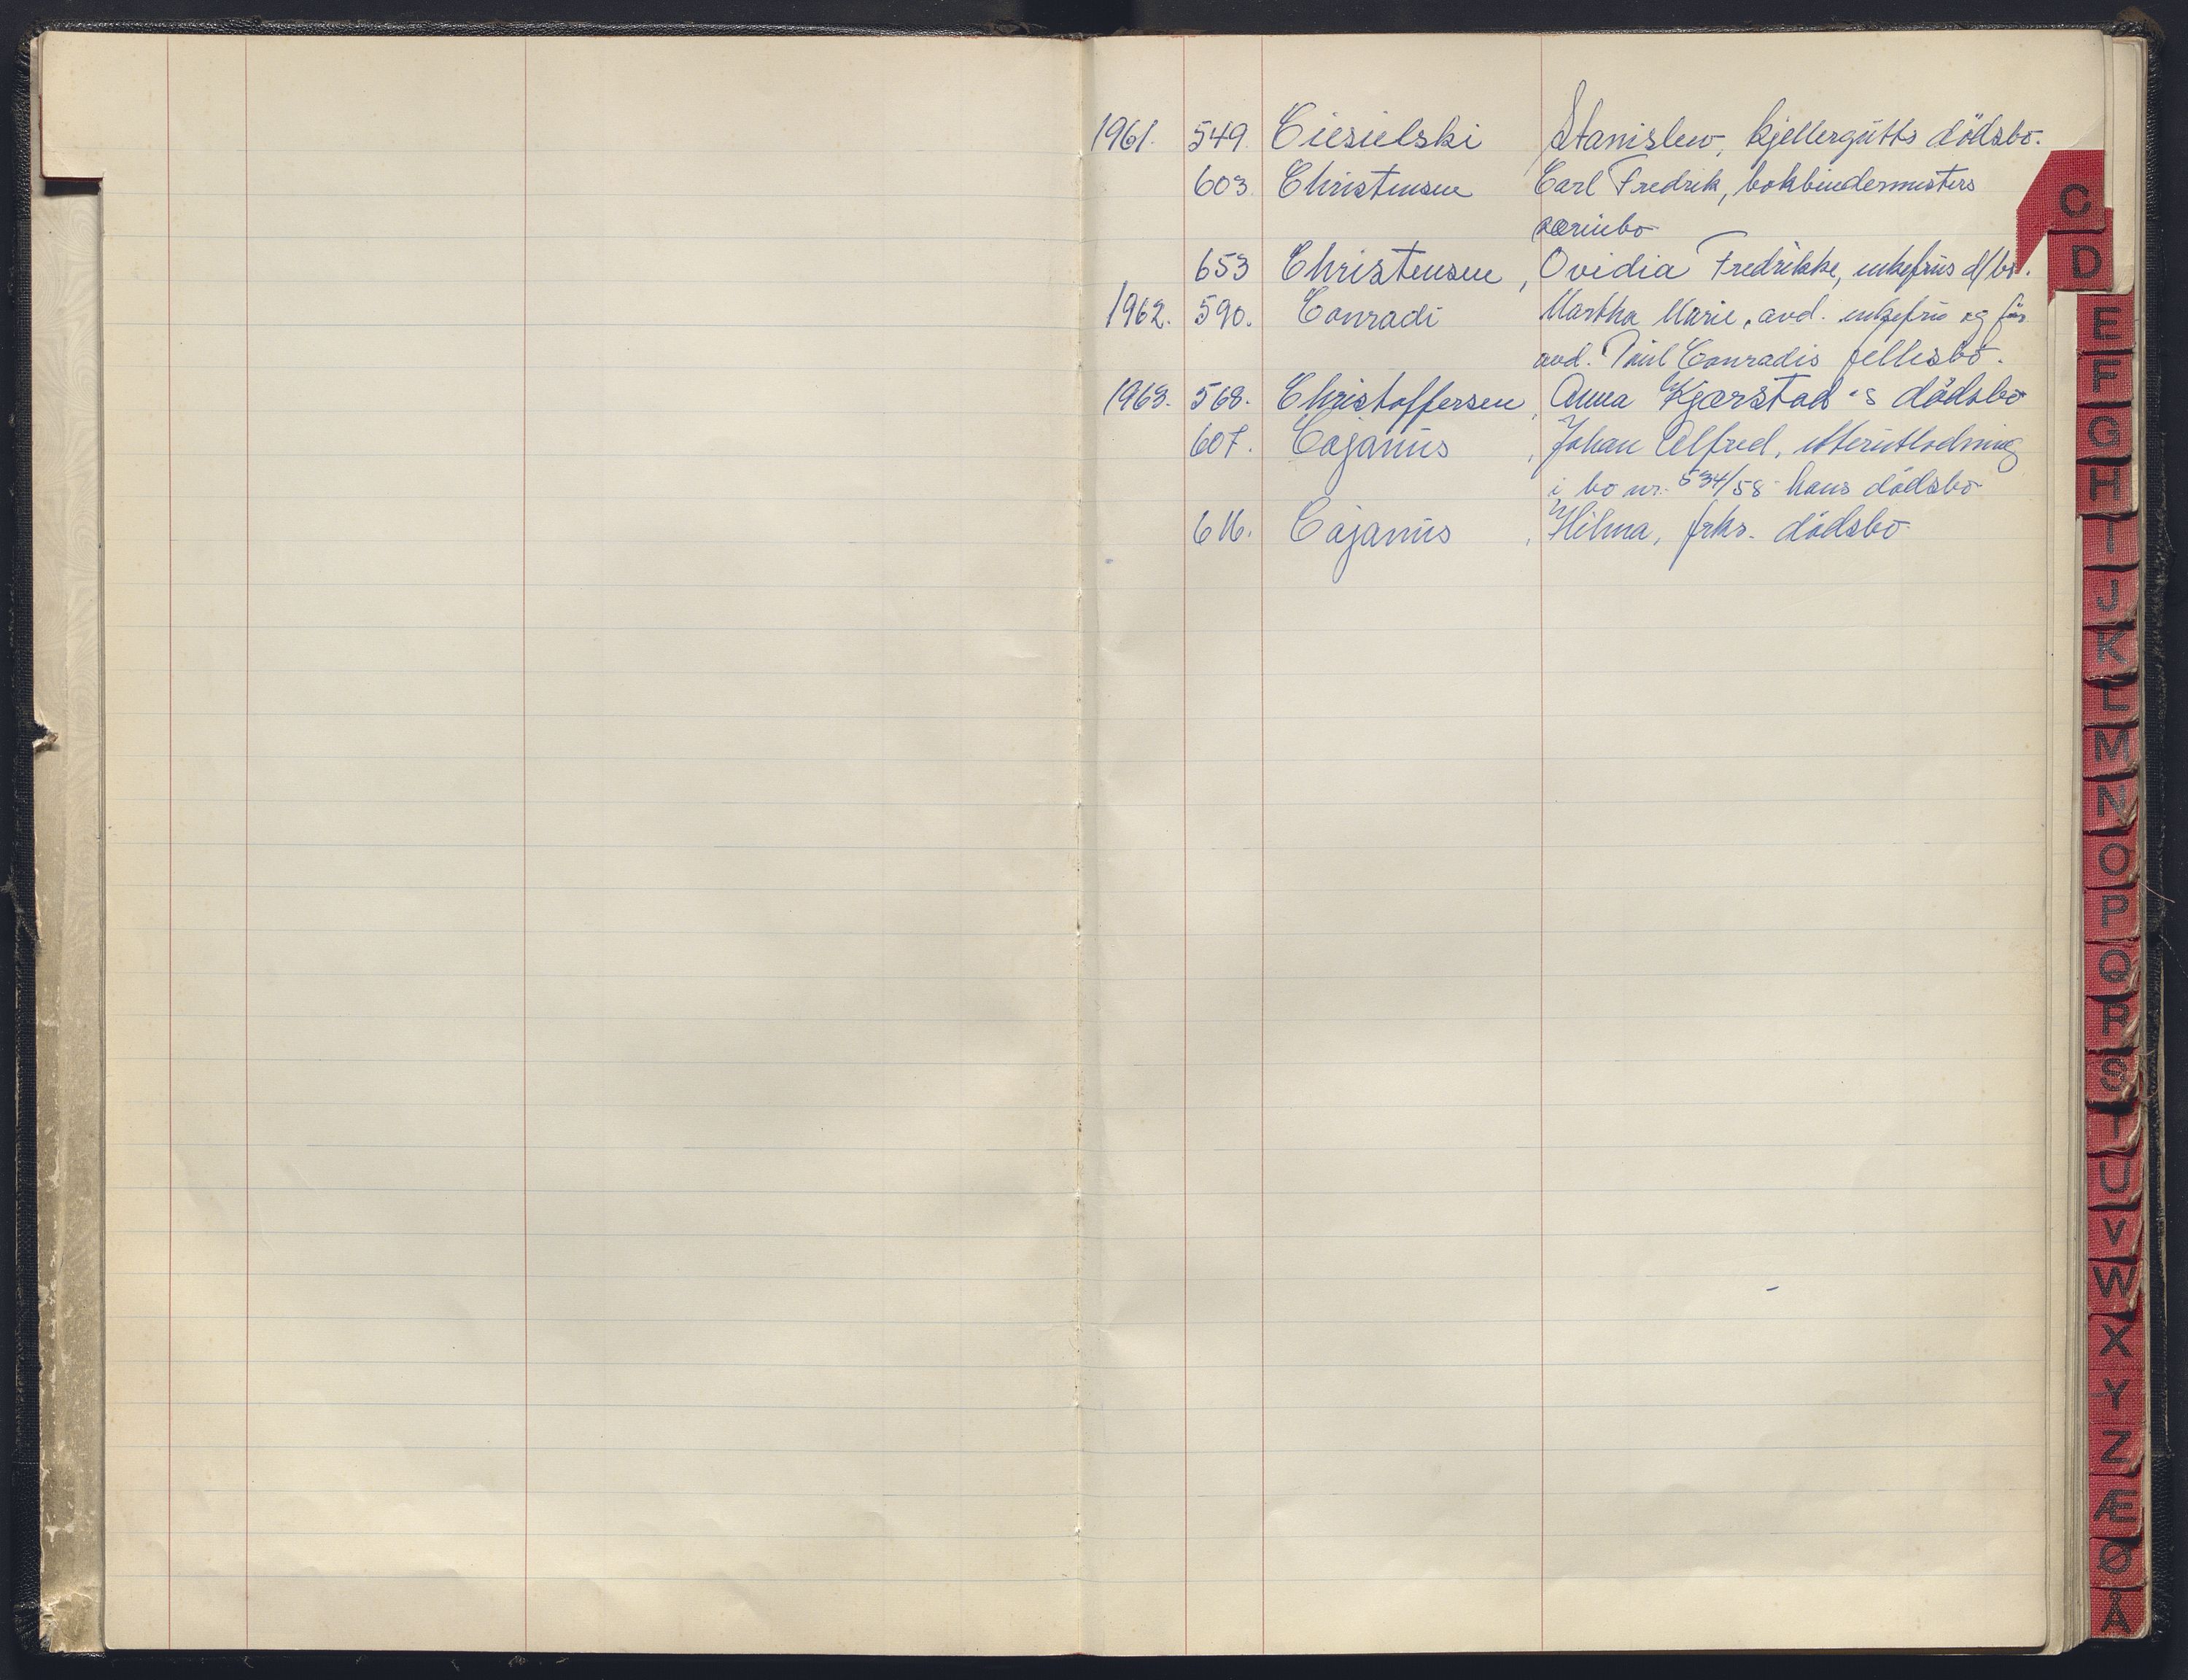 1961. 549. Ciesielski Stanislew, kjellergutts dödsbo.
603. Christensen Carl Fredrik, bokbindermesters
særinbo
653 Christensen, Ovidia Fredrikke, enkefrus d/bo.
1962. 590. Conradi Martha Marie, avd. enkefru og før
avd. Paul Conradis fellesbo.
1963. 568. Christoffersen, Anna Kjærstad's dödsbo
607. Cajanus, Johan Alfred, etterutlodning
i bo nr. 534/58 hans dödsbo
616. Cajanus, Hilma, frks. dödsbo
C
D
E
F
G
H
I
J
K
L
M
N
O
P
Q
R
S
T
U
V
W
X
Y
Z
Æ
Ø
Å